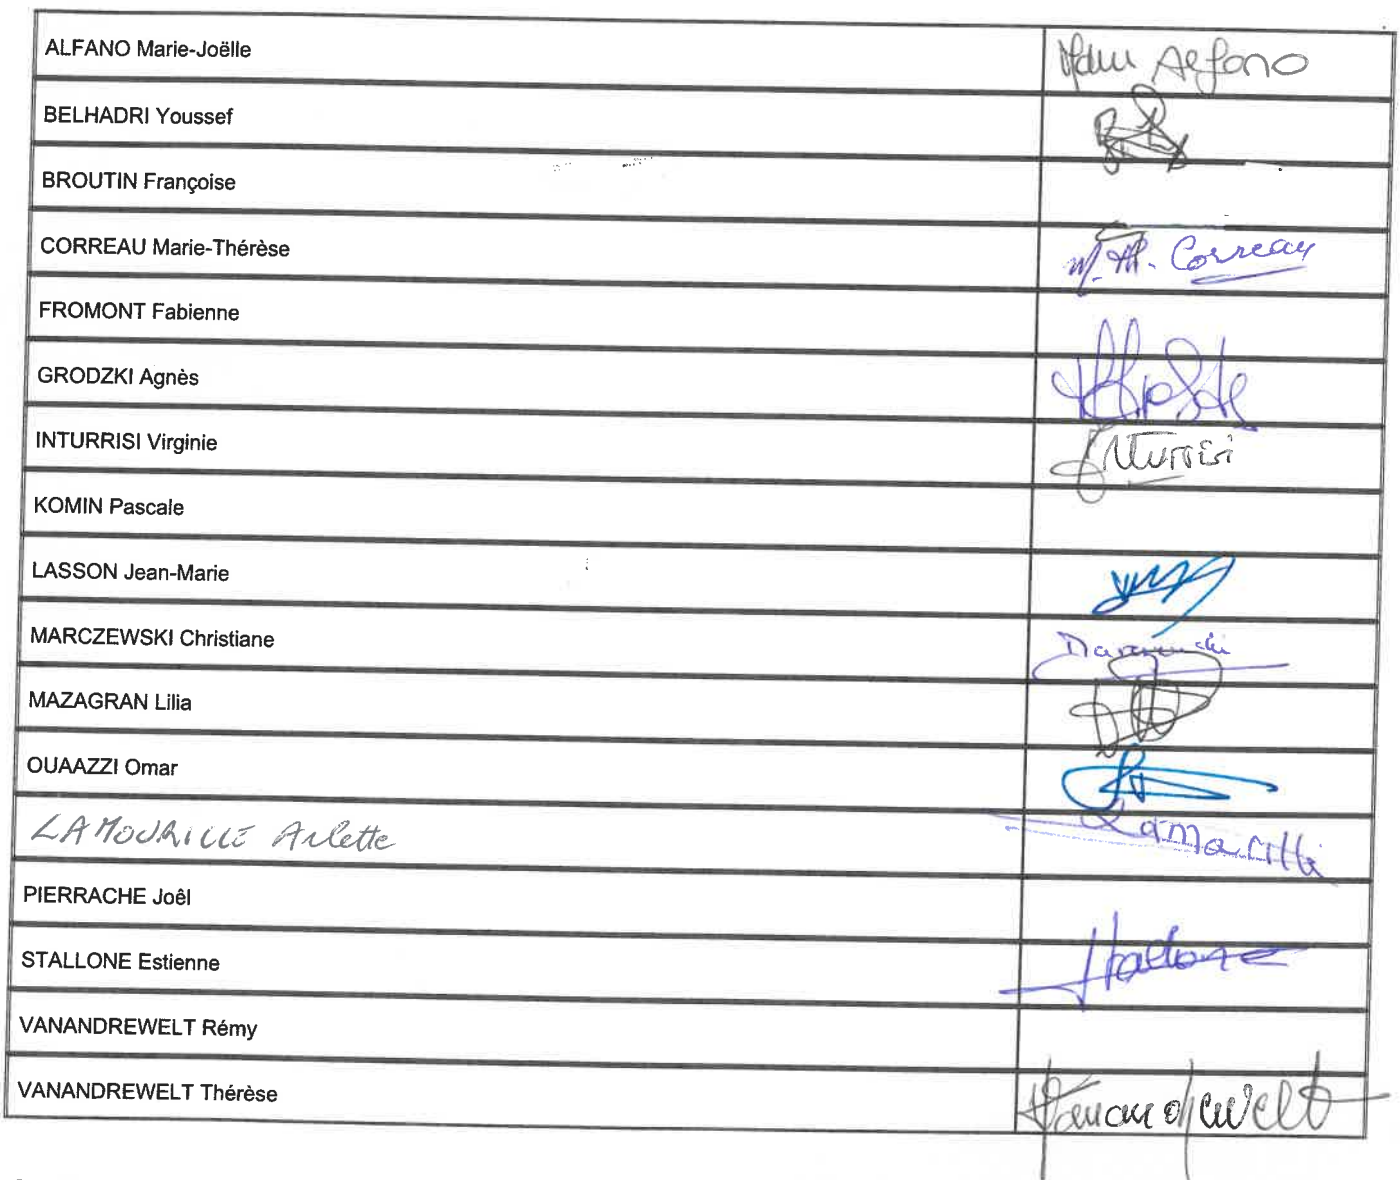 ALFANO Marie-Joëlle Alfano
BELHADRI Youssef
BROUTIN Françoise
CORREAU Marie-Thérèse M. Th. Correau
FROMONT Fabienne
GRODZKI Agnès
INTURRISI Virginie
KOMIN Pascale
LASSON Jean-Marie
MARCZEWSKI Christiane
MAZAGRAN Lilia
OUAAZZI Omar
LAMOURILLE Arlette
PIERRACHE Joêl
STALLONE Estienne Stallone
VANANDREWELT Rémy
VANANDREWELT Thérèse Vanandrewelt